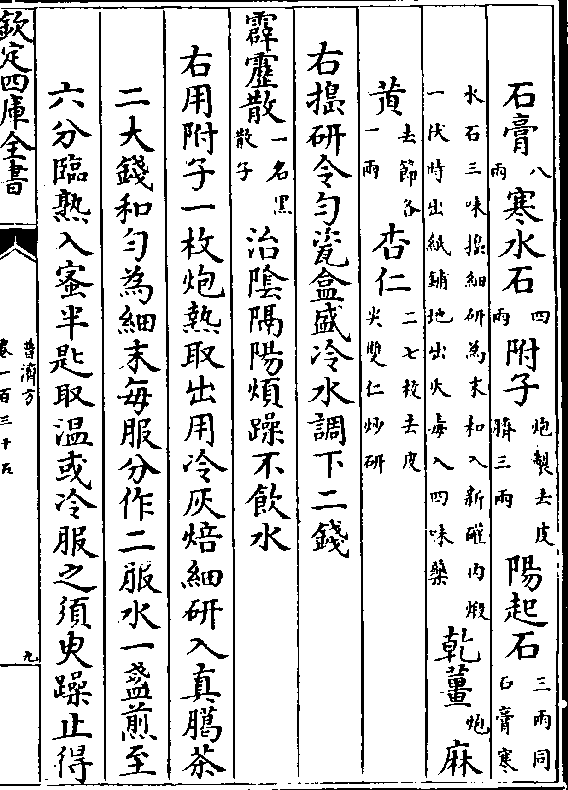 石膏八兩 寒水石四兩 附子炮製去皮臍三兩 陽起石三兩同石膏寒
水石三味搗細研為末和入新確內煅一伏時出紙鋪地出火毒入四味藥 乾薑炮 麻
黃去節各一兩 杏仁二七枚去皮尖雙仁炒研
右搗研令勻瓷盒盛冷水調下二錢
霹靂散一名黑散子 治陰隔陽煩躁不飲水
右用附子一枚炮熟取出用冷灰焙細研入真臈茶
二大錢和勻為細末每服分作二服水一盞煎至
六分臨熟入蜜半匙取温或冷服之須臾躁止得
欽定四庫全書
普濟方
卷一百三十五
九